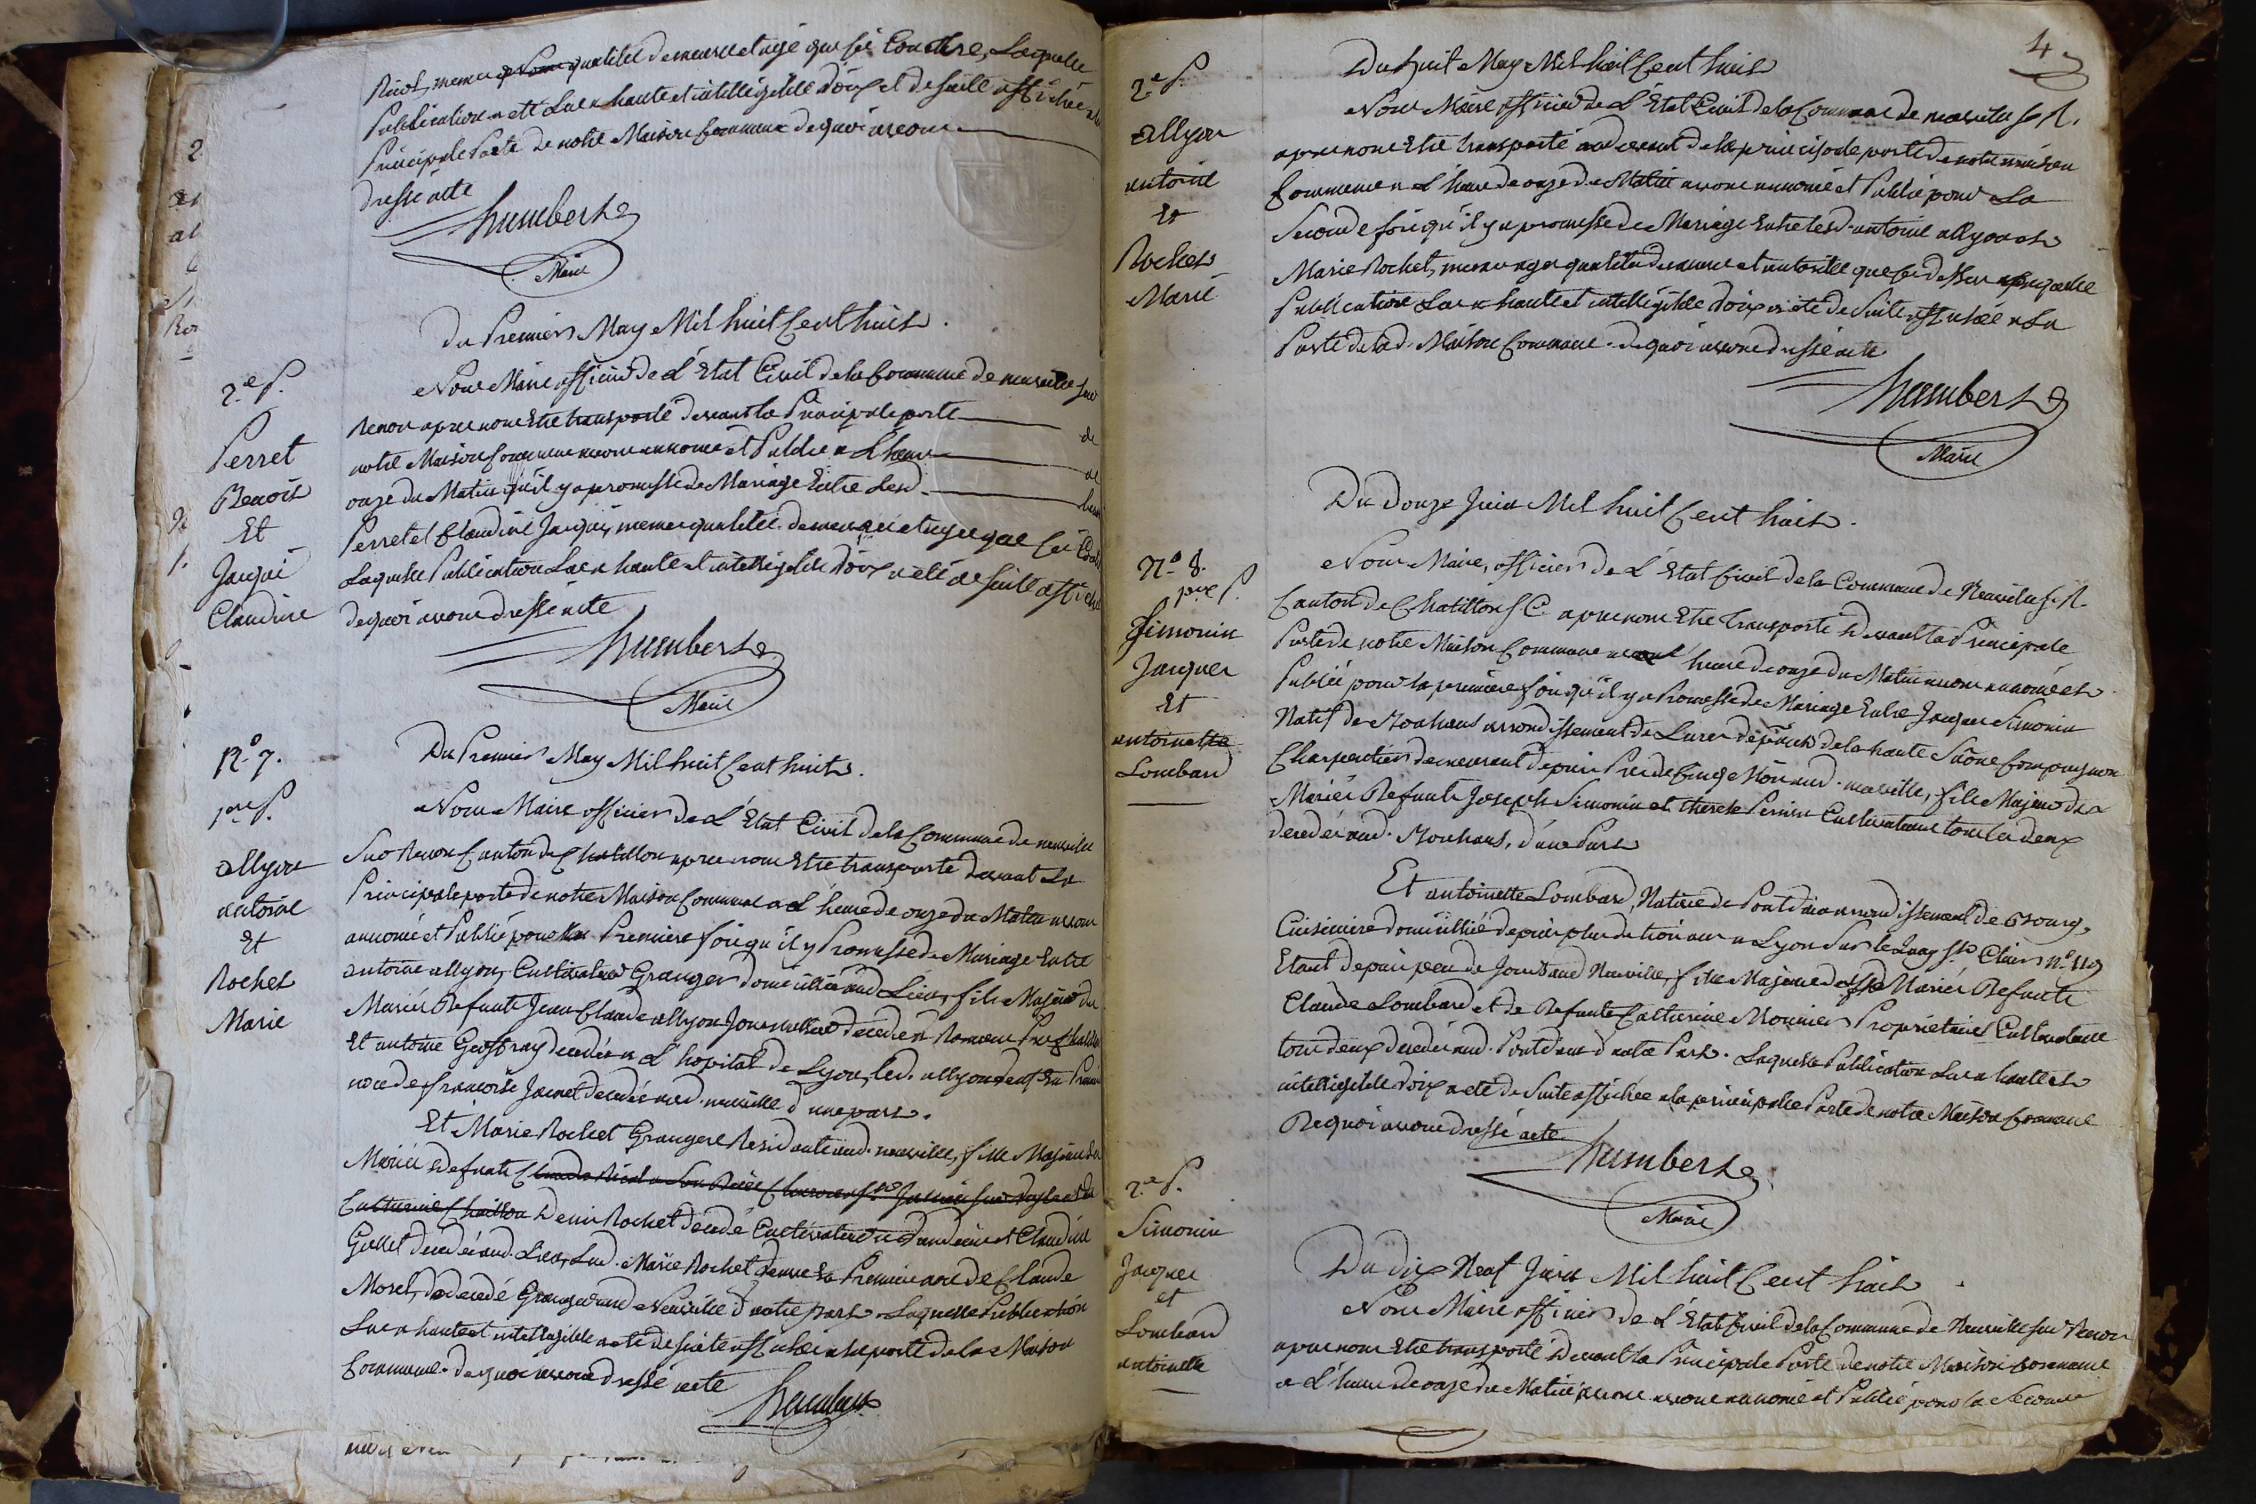 Ricol, meme qualitée demeure et age que ci Contre, Laquelle
Publication a été Lue a haute et intelligible Voix et de suitte affichée a la
Principale Porte de notre Maison Commune dequoi avons
dressé acte
humbert
Maire
Du Premier May Mil huit Cent huit.
2.e P.
Perret
Benoit
Et
Jaqui
Claudine
Nous Maire officier de L'Etat Civil de la Commune de neuville sur
Renon apres nous Etre transporté devant la Principale porte de
notre Maison Commune avons annoncé et Publié a L'heure de
onze du Matin qu'il y a promesse de Mariage Entre Led.
Perret et Claudine Jaqui, meme qualitée demeure et age que ci
Laquelle Publication Lue a haute et intelligible Voix a été de suitte affichée
dequoi avons dressé acte
humbert
Maire
N.o 7.
1ere P.
allyon
antoine
Et
Rochet
Marie
Du Premier May Mil huit Cent huit.
Nous Maire officier de L'Etat Civil de la Commune de neuville
Sur Renon Canton de Chatillon apres nous Etre transporté devant La
Principale porte de notre Maison Commune a L'heure de onze du Matin avons
annoncé et Publié pour La Premiere fois qu'il y Promesse de Mariage Entre
antoine allyon, Cultivateur Granger domicillié aud. Lieu, fils Majeur de
Mariés Defunts Jean Claude allyon Journallier decedé a
Et antoine Geoffray decedée a L'hopital de Lyon, led. allyon Veuf En Premiere
noce de francoise Jaqnet decedée aud. neuville d'une part.
Et Marie Rochet Grangere Residente aud. neuville, fille Majeure de
Mariés Defunts
Catherine Chaillou Denis Rochet decedé Cultivateur et Claudine
Gullet decedés aud. Lieu, Lad. Marie Rochet Veuve En Premiere noce de Claude
Morel, decedé Granger aud. Neuville d'autre part. Laquelle Publication
Lue a haute et intelligible a été de suite affichée a la porte de la Maison
Commune. dequoi avons dressé acte
humbert
4
2.e P.
allyon
antoine
Et
Rochet
Marie
Du huit May Mil huit Cent huit
Nous Maire officier de L'Etat Civil de la Commune de neuville s. R.
apres nous Etre transporté au devant de la principale porte de notre maison
Commune a L'heure de onze du Matin avons annoncé et Publié pour La
Seconde fois qu'il y a promesse de Mariage Entre led. antoine allyon et
Marie Rochet, meme age qualitée demeure et autorité que ci dessus laquelle
Publication Lue a haute et intelligible Voix a été de Suite affichée a La
Porte de lad. Maison Commune. dequoi avons dressé acte
humbert
Maire
Du Douze Juin Mil huit Cent huit.
N.o 8.
1ere P.
Simonin
Jacques
Et
antoinette
Lombard
Nous Maire, officier de L'Etat Civil de la Commune de Neuville s. R.
Canton de Chatillon s C apres nous Etre transporté Devant la Principale
Porte de notre Maison Commune heure de onze du Matin avons annoncé et
Publié pour la premiere fois qu'il y a Promesse de Mariage Entre Jacques Simonin
Natif de Mouhans arrondissement de Lure, départ. de la haute Saône Compagnon
Charpentier demeurant depuis Pres de Cinq Mois aud. neuville, fils Majeur de
Mariés Defunts Joseph Simonin et therese Perrin Cultivateurs tous les deux
decedés aud. Mouhans, d'une Part
Et antoinette Lombard, Native de Pont d'ain arrondissement de Bourg,
Cuisiniere domicilliée depuis plus de trois ans a Lyon Sur le Quay St. Clair n.o 119
Etant depuis peu de Jours aud. Neuville, fille Majeure de Mariés Defunts
Claude Lombard et de Defunte Catherine Monnier Propriétaires Cultivateurs
tous deux decedés aud. Pont d'ain d'autre Part. Laquelle Publication Lue a haute et
intelligible Voix a été de Suite affichée a la principale Porte de notre Maison Commune
Dequoi avons dressé acte
humbert
Maire
2.e P.
Simonin
Jacques
et
Lombard
antoinette
Du dix Neuf Juin Mil huit Cent huit
Nous Maire officier de L'Etat Civil de la Commune de Neuville sur Renon
apres nous Etre transporté Devant la Principale Porte de notre Maison Commune
a L'heure de onze du Matin avons annoncé et Publié pour la Seconde